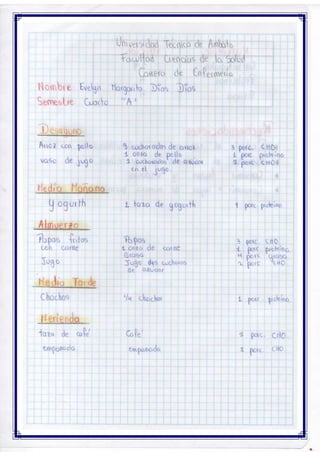 Universidad Técnica de Ambato
Facultad Ciencias de la Salud
Carrera de Enfermería
Nombre Evelyn Margarita Días Días
Semestre Cuarto "A"
Desayuno
Arroz con pollo 3 cucharadas de arroz 3 porc. CHO
1 onza de pollo 1 porc proteína
vaso de jugo 2 cucharadas de azúcar 2 porc. CHO
en el jugo
Media Mañana
Yogurth 1 taza de yogurth 1 porc proteína
Almuerzo
Papas fritas Papas 3 porc. CHO
con carne 1 onza de carne 1 porc proteína
Grasa 4 porc grasa
Jugo Jugo dos cucharas 2 porc CHO
de azucar
Media Tarde
Chochos 1/4 chochos 1 porc proteína
Merienda
taza de café Café 3 porc. CHO
empanada empanada 2 porc. CHO